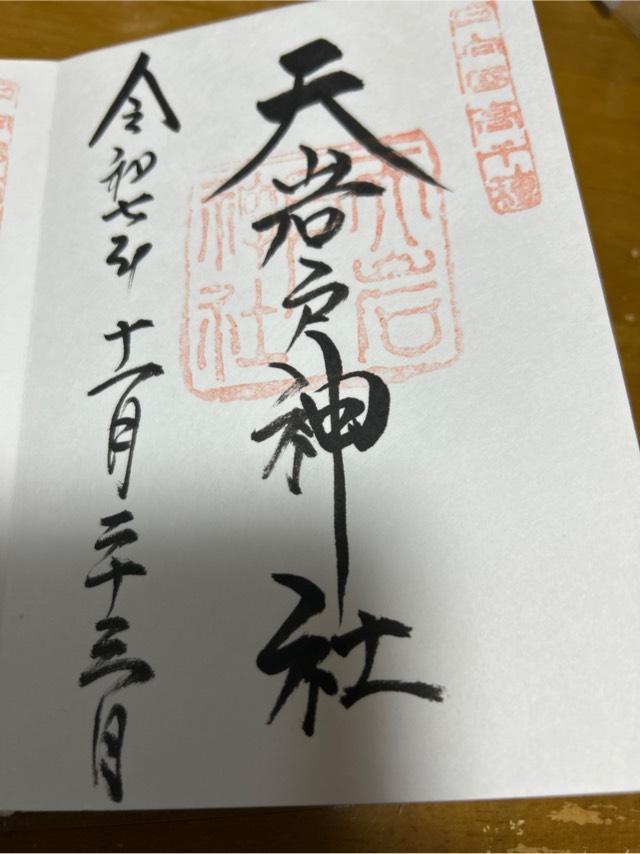 高千穂
天岩戸神社
天岩戸神社
令和七年 十一月二十三日